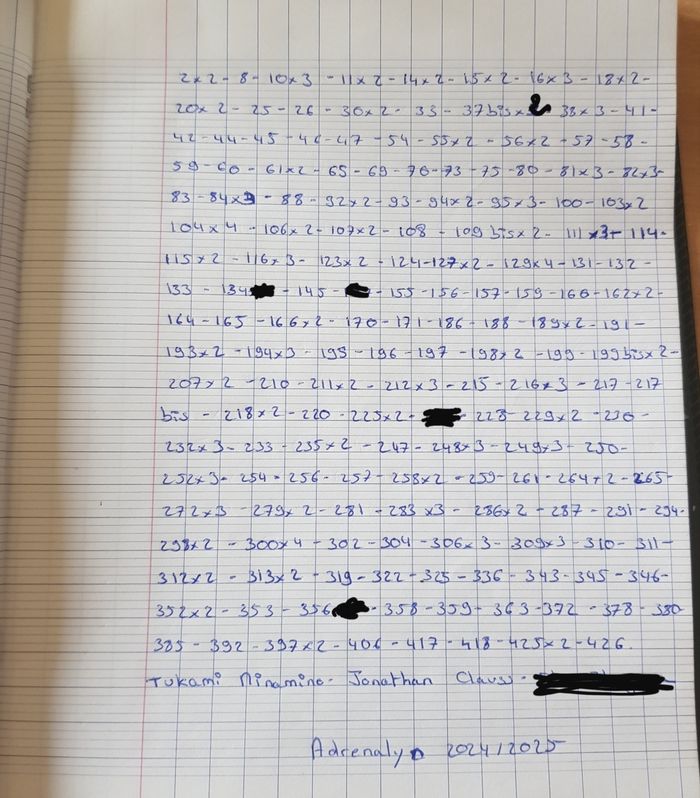 2x2 - 8 - 10x3 - 11x2 - 14x2 - 15x2 - 16x3 - 18x2 -
20x2 - 25 - 26 - 30x2 - 33 - 37bisx2 38x3 - 41 -
42 - 44 - 45 - 46 - 47 - 54 - 55x2 - 56x2 - 57 - 58 -
59 - 60 - 61x2 - 65 - 69 - 70 - 73 - 75 - 80 - 81x3 - 82x3 -
83 - 84x3 - 88 - 92x2 - 93 - 94x2 - 95x3 - 100 - 103x2
104x4 - 106x2 - 107x2 - 108 - 109bisx2 - 111x3 - 114 -
115x2 - 116x3 - 123x2 - 124 - 127x2 - 129x4 - 131 - 132 -
133 - 134 - 145 - 155 - 156 - 157 - 159 - 160 - 162x2 -
164 - 165 - 166x2 - 170 - 171 - 186 - 188 - 189x2 - 191 -
193x2 - 194x3 - 195 - 196 - 197 - 198x2 - 199 - 199bisx2 -
207x2 - 210 - 211x2 - 212x3 - 215 - 216x3 - 217 - 217
bis - 218x2 - 220 - 225x2 - 228 - 229x2 - 230 -
232x3 - 233 - 235x2 - 247 - 248x3 - 249x3 - 250 -
252x3 - 254 - 256 - 257 - 258x2 - 259 - 261 - 264x2 - 265 -
272x3 - 279x2 - 281 - 283x3 - 286x2 - 287 - 291 - 294 -
298x2 - 300x4 - 302 - 304 - 306x3 - 309x3 - 310 - 311 -
312x2 - 313x2 - 319 - 322 - 325 - 336 - 343 - 345 - 346 -
352x2 - 353 - 356 - 358 - 359 - 363 - 372 - 378 - 380
385 - 392 - 397x2 - 406 - 417 - 418 - 425x2 - 426.
Tukami Minamino - Jonathan Clauss -
Adrenalyn 2024/2025